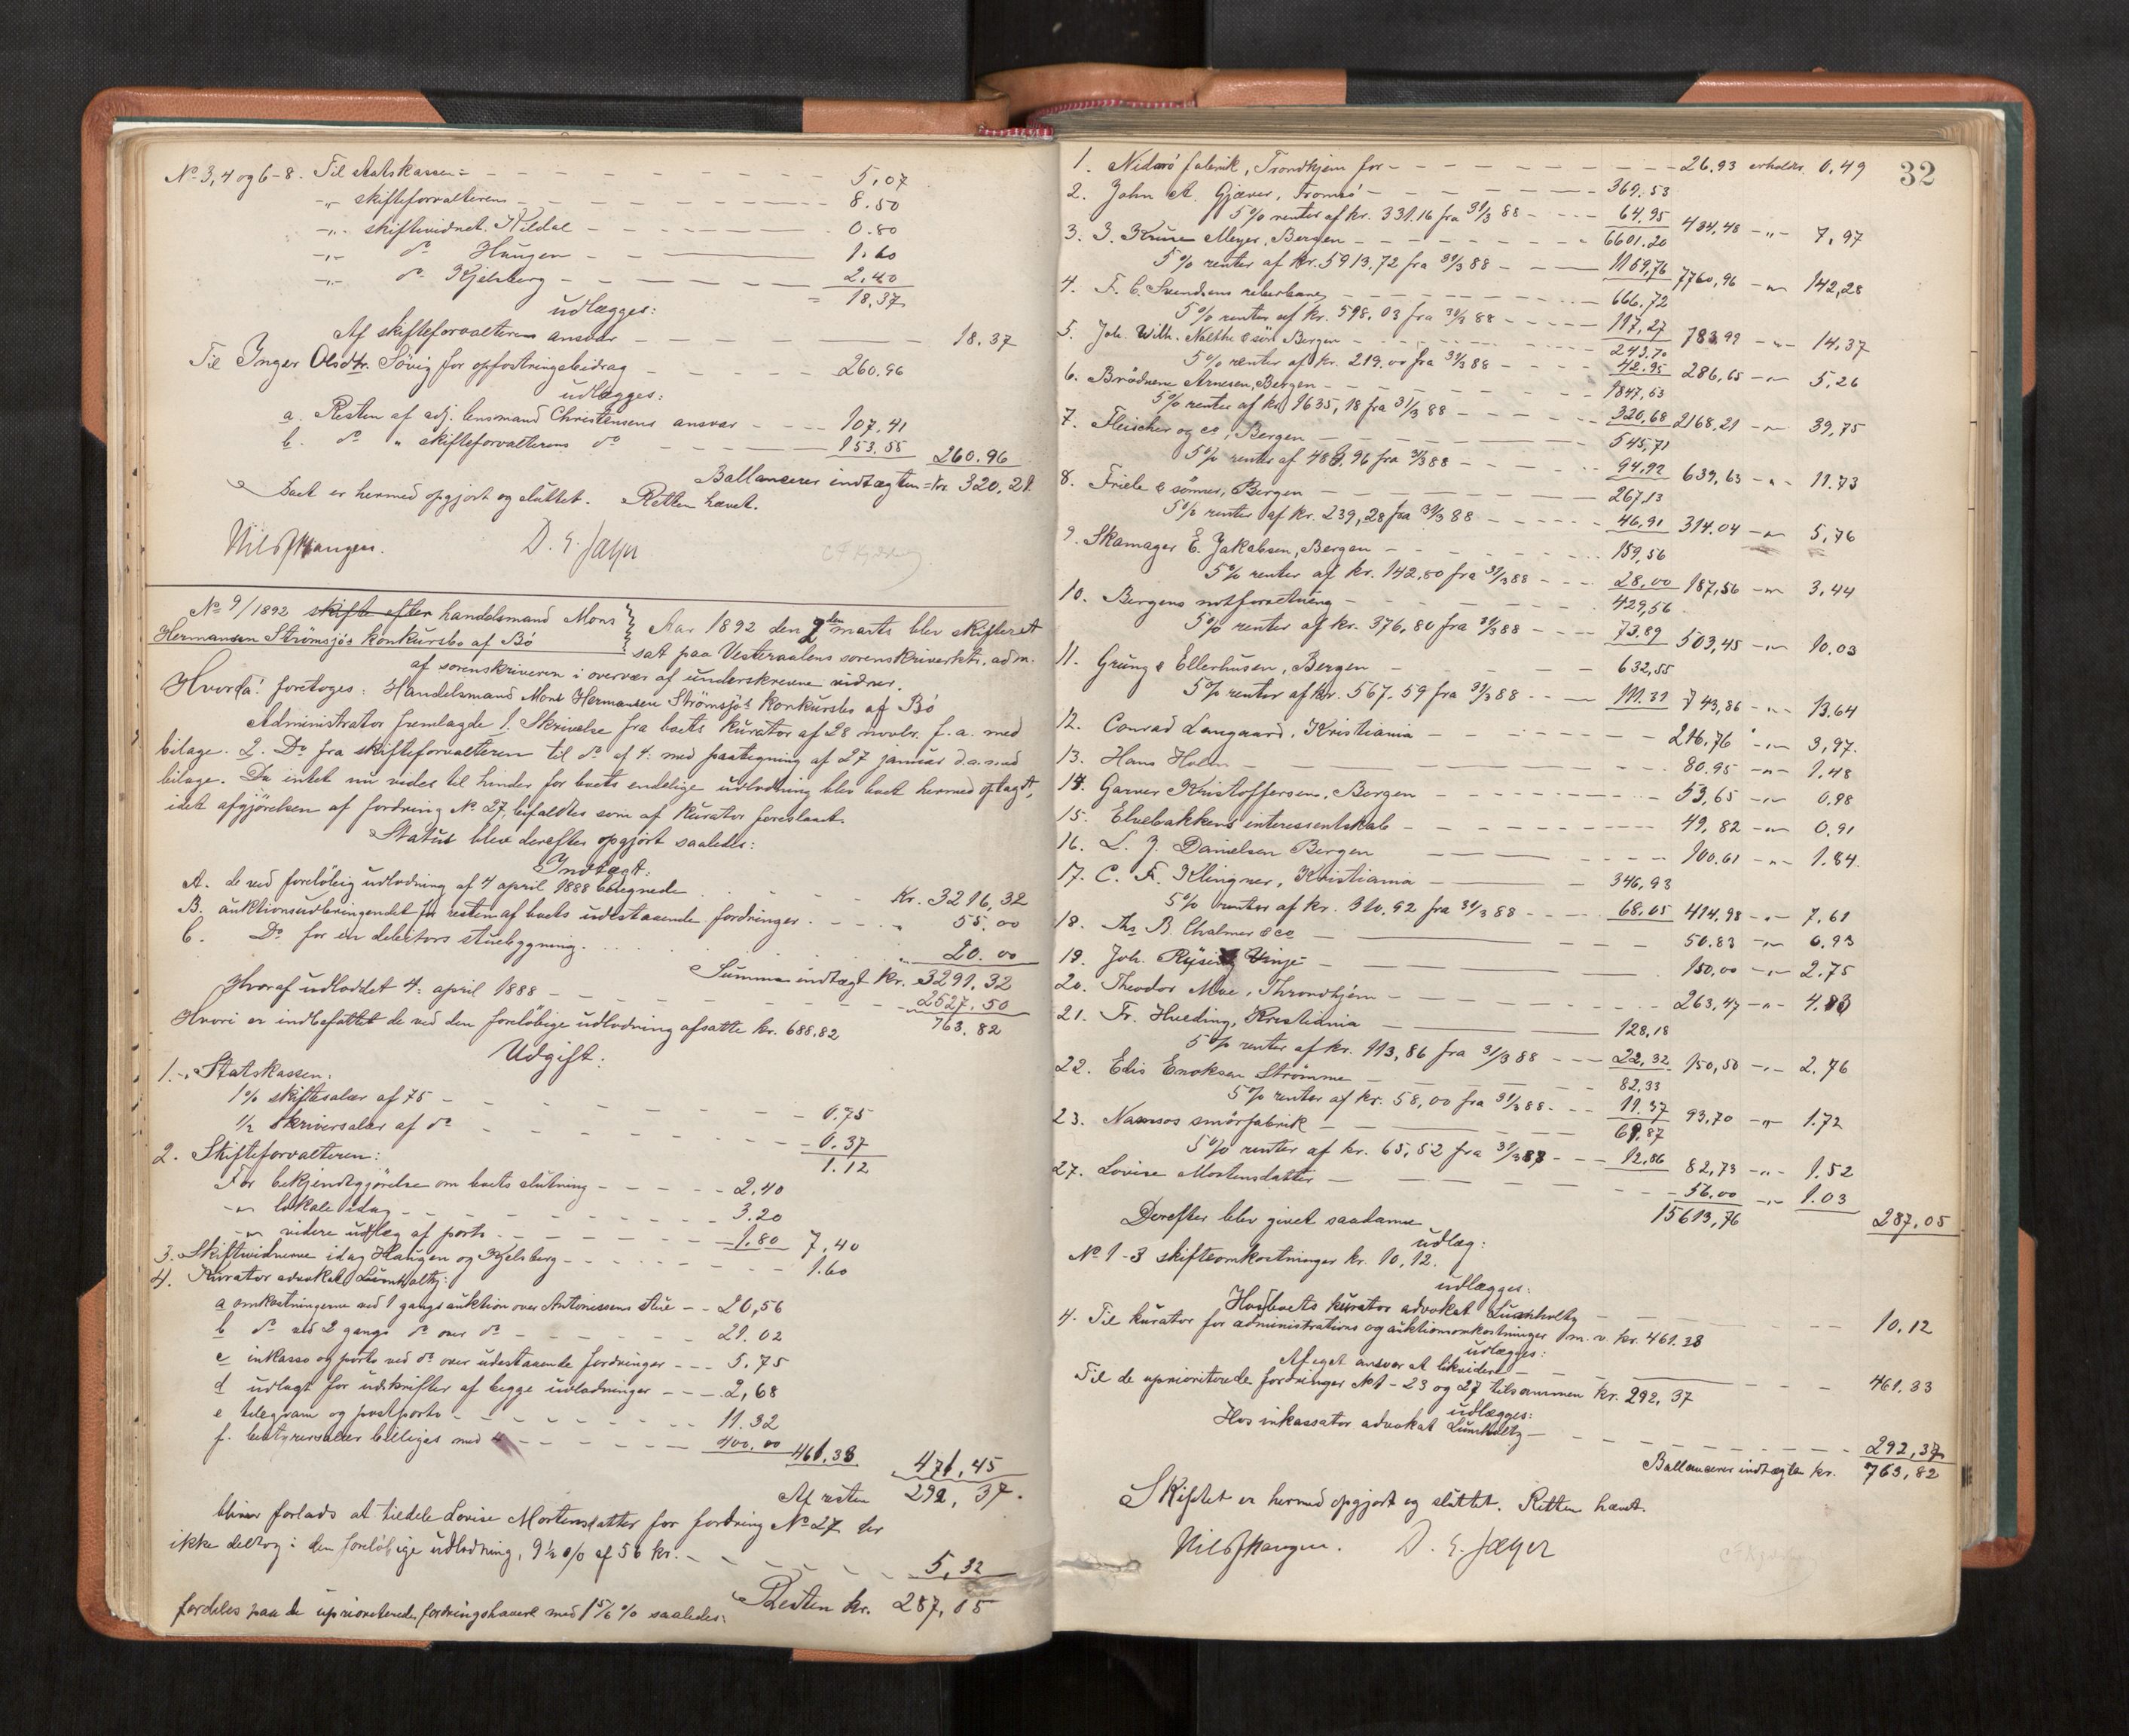 No 3, 4 og 6-8. Til Statskassen = 5,07
-"- skifteforvalteren 8.50
-"- skiftevidnet Kildal 0.80
-"- do Haugen 1.60
-"- do Kjelsberg 2.40
= 18,37
udlægges:
Af skifteforvalterens ansvar 18.37
Til Inger Olsdtr. Sörig for opfostringsbidrag 260.96
udlægges:
a. Resten af adj. lensmand Christensens ansvar 107.41
b. do " skifteforvalterens do 153.55 260.96
Ballancerer indtægten = kr. 320,29
Boet er hermed opgjort og sluttet. Retten hævet.
Nils Haugen. D. E. Jæger
No 9/1892 skifte efter handelsmand Mons
Hermansen Strömsjös konkursbo af Bö
Aar 1892 den 2den marts blev skifteret
sat paa Vesteraalens sorenskriverkts. adm.
af sorenskriveren i overvær af underskrevne vidner.
Hvorda! foretoges: Handelsmand Mons Hermansen Strömsjös konkursbo af Bö
Administrator fremlagde 1. Skrivelse fra boets kurator af 28 novbr. f. a. med
bilage. 2. Do fra skifteforvalteren til do af 4. med paategning af 27 januar d.a. med
bilage. Da intet nu vides til hinder for boets endelige udlodning blev boet hermed optagt,
idet afgjörelsen af fordring No 27, bifaldtes som af kurator foreslaaet.
Status blev derefter opgjort saaledes:
Indtægt:
A. de ved foreløbig udlodning af 4 april 1888 beregnede kr. 3216,32
B. auktionsudbringendet for resten af boets udestaaende fordringer. " 55.00
C. Do for en debitors stuebygning. " 20.00
Summa indtægt kr. 3291.32
Hvoraf udloddet 4. april 1888 2527.50
763.82
Hvori er indbefattet de ved den foreløbige udlodning afsatte kr. 688,82
Udgift:
1. Statskassen:
1% skiftesalær af 75 0.75
1/2 skriversalær af do 0.37
1.12
2. Skifteforvalteren:
For bekjendtgjörelse om boets slutning 2.40
-"- lokale idag 3.20
-"- videre udlæg af porto 1.80 7,40
3. Skiftevidnerne idag Haugen og Kjelsberg 1.60
4. Kurator advokat Lumholtz:
a omkostningerne ved 1 gangs auktion over Antonissens stue 20,56
b do ved 2 gangs do over do 21.02
c inkasso og porto ved do over udestaaende fordringer 5,75
d udlagt for udskrifter af begge udlodninger 2,68
e telegram og postporto 11.32
f. bestyrersalær billiges med 400.00 461.33 471,45
Af resten 292,37.
bliver forlods at tildele Lovise Mortensdatter for fordring No 27 der
ikke deltog i den foreløbige udlodning, 9 1/2 o/o af 56 kr. 5,32
Resten kr. 287,05
fordeles paa de uprioriterede fordringshavere med 1 5/6 % saaledes:
32
1. Nidarö fabrik, Trondhjem for 26.93 erholder 0,49
2. John A. Gjæver, Tromsö 369.53
5% renter af kr. 331.16 fra 31/3 88 64.95 434,48 -"- 7,97
3. J. Kruse Meyer, Bergen 6601.20
5% renter af kr. 5913,72 fra 31/3 88 1159,76 7760,96 -"- 142,28
4. F. C. Svendsens reberbane 666,72
5% renter af kr. 598,03 fra 31/3 88 117,27 783.99 -"- 14,37
5. Joh. Wilh. Nolthe & sön Bergen 243.70
5% renter af kr. 219.00 fra 31/3 88 42.95 286,65 -"- 5,26
6. Brödrene Arnesen, Bergen 1847,53
5% renter af kr. 1635,18 fra 31/3 88 320,68 2168,21 -"- 39,75
7. Fleischer og co, Bergen 545,71
5% renter af 483,96 fra 31/3 88 94,92 639,63 -"- 11.73
8. Friele & sönner, Bergen 267,13
5% renter af kr. 239,28 fra 31/3 88 46,91 314.04 -"- 5,76
9. Skomager E. Jakobsen, Bergen 159,56
5% renter af kr. 142,80 fra 31/3 88 28,00 187,56 -"- 3,44
10. Bergens notforretning 429,56
5% renter af kr. 376,80 fra 31/3 88 73.89 503,45 -"- 10.03
11. Grung & Ellerhusen, Bergen 632,55
5% renter af kr. 567.59 fra 31/3 88 111.31 743,86 -"- 13.64
12. Conrad Langaard, Kristiania 216.76 -"- 3,97.
13. Hans Holm 80.95 -"- 1.48
14. Garver Kristoffersen, Bergen 53,65 -"- 0,98
15. Elvebakkens interessentskab 49,82 -"- 0,91
16. L. J. Danielsen Bergen 100.61 -"- 1.84.
17. C. F. Klingner, Kristiania 346,93
5% renter af kr. 310.92 fra 31/3 88 68.05 414.98 -"- 7,61
18. Ths B. Chalmer & co 50.83 -"- 0.93
19. Joh. Vinje 150,00 -"- 2.75
20. Theodor Moe, Throndhjem 263,47 -"- 4.83
21. Fr. Hveding, Kristiania 128,18
5% renter af kr. 113,86 fra 31/3 88 22,32 150,50 -"- 2.76
22. Edis Enoksen Strömme 82,33
5% renter af kr. 58,00 fra 31/3 88 11.37 93,70 -"- 1.72
23. Namsos smörfabrik 69,87
5% renter af kr. 65,52 fra 31/3 88 12,86 82,73 -"- 1.52
27. Lovise Mortensdatter 56.00 -"- 1.03
15613,76 287,05
Derefter blev givet saadanne
udlæg:
No 1-3 skifteomkostninger kr. 10,12.
udlægges:
Hos boets kurator advokat Lumholtz 10,12
4. Til kurator for administrations og auktionsomkostninger m. v. kr. 461.33
udlægges:
Af eget ansvar at likvidere 461.33
Til de uprioriterede fordringer No 1-23 og 27 tilsammen kr. 292,37
udlægges:
Hos inkassator advokat Lumholtz 292,37
Ballancerer indtægten kr. 763,82
Skiftet er hermed opgjort og sluttet. Retten hævt.
Nils Haugen. D. E. Jæger